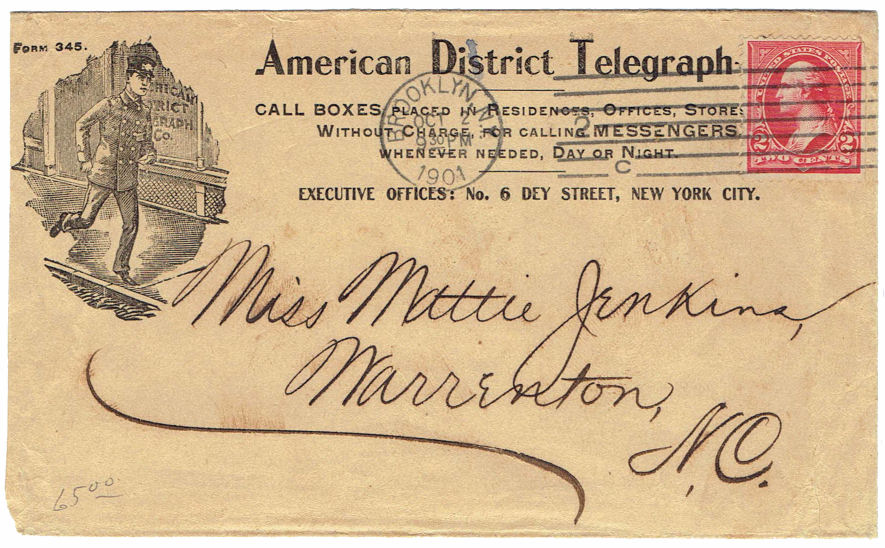 FORM 345.
American District Telegraph
CALL BOXES, PLACED IN RESIDENCES, OFFICES, STORES
WITHOUT CHARGE, FOR CALLING MESSENGERS
WHENEVER NEEDED, DAY OR NIGHT.
EXECUTIVE OFFICES: No. 6 DEY STREET, NEW YORK CITY.
BROOKLYN, N
OCT 2
8 30 PM
1901
2
C
UNITED STATES POSTAGE
2 2
TWO CENTS
TRICT
GRAPH
Co.
Miss Mattie Jenkins,
Warrenton,
N.C.
65 00